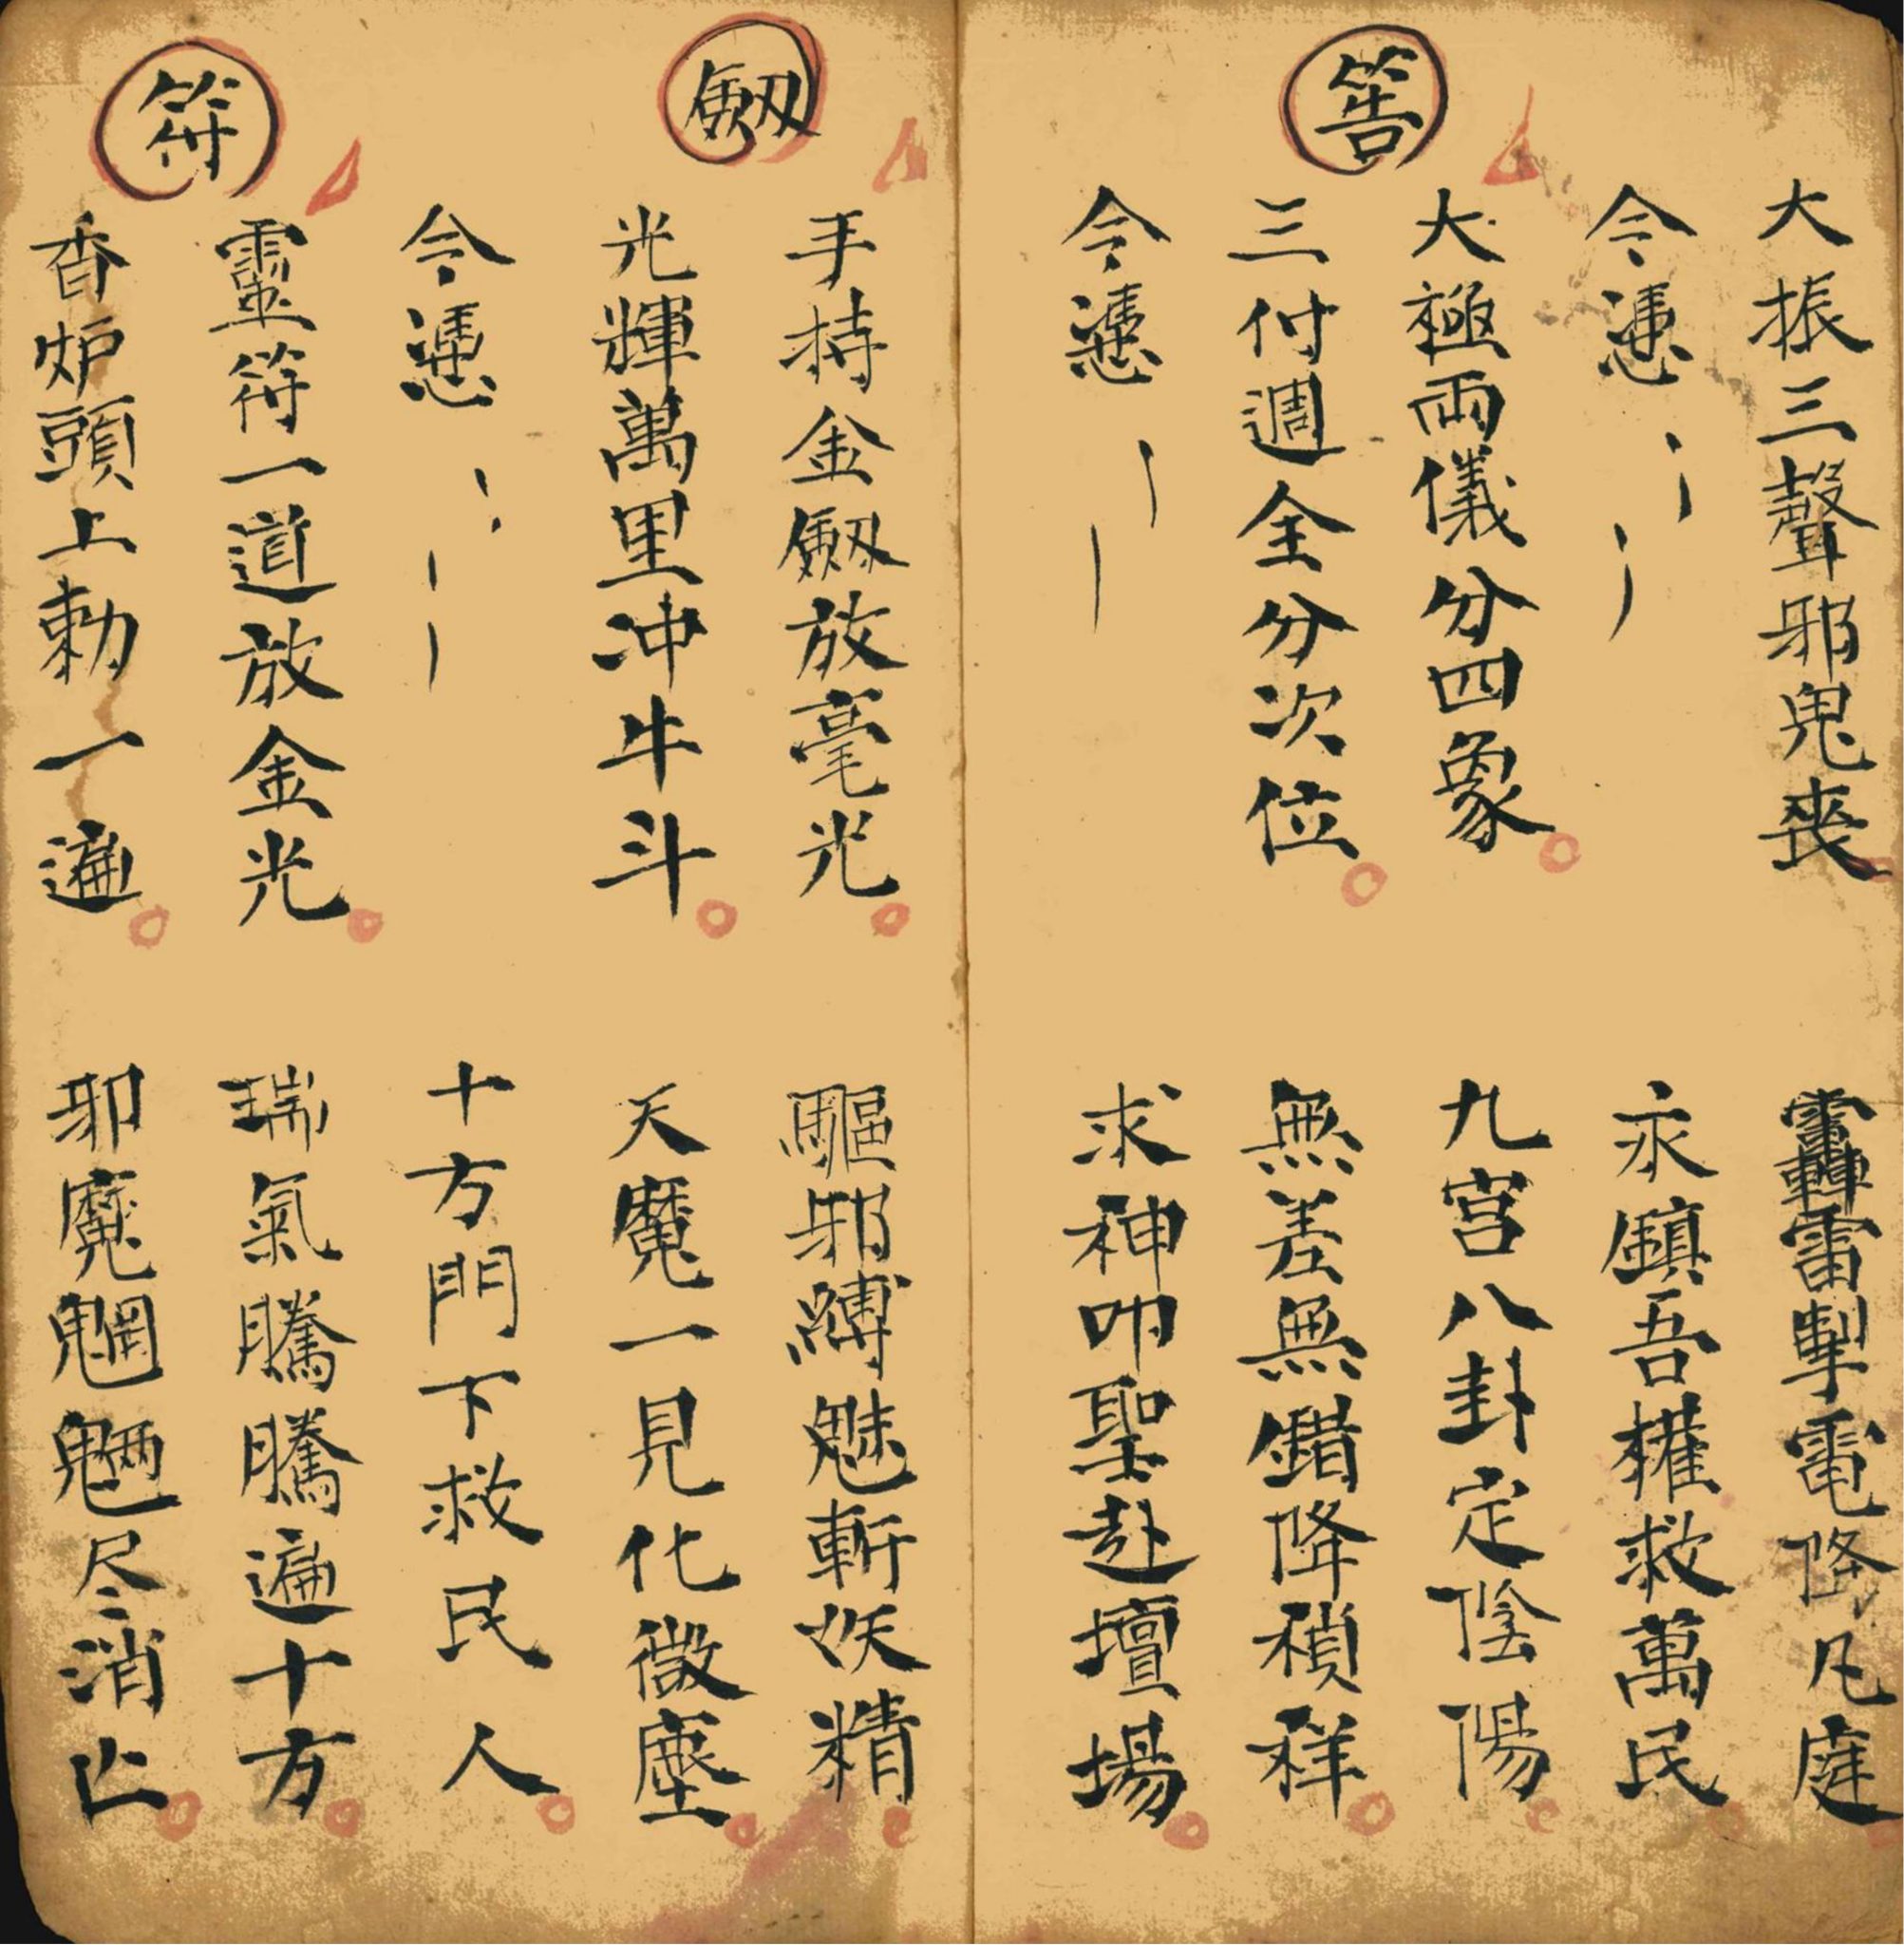 大振三聲邪鬼喪 轟雷掣電降凡庭
今憑 永鎮吾權救萬民
筶
大極兩儀分四象 九宮八卦定陰陽
三付週全分次位 無差無錯降禎祥
今憑 求神叩聖赴壇場
劔
手持金劔放毫光 驅邪縛魅斬妖精
光輝萬里冲牛斗 天魔一見化微塵
今憑 十方門下救民人
符
靈符一道放金光 瑞氣騰騰遍十方
香炉頭上勅一遍 邪魔魍魎尽消亡